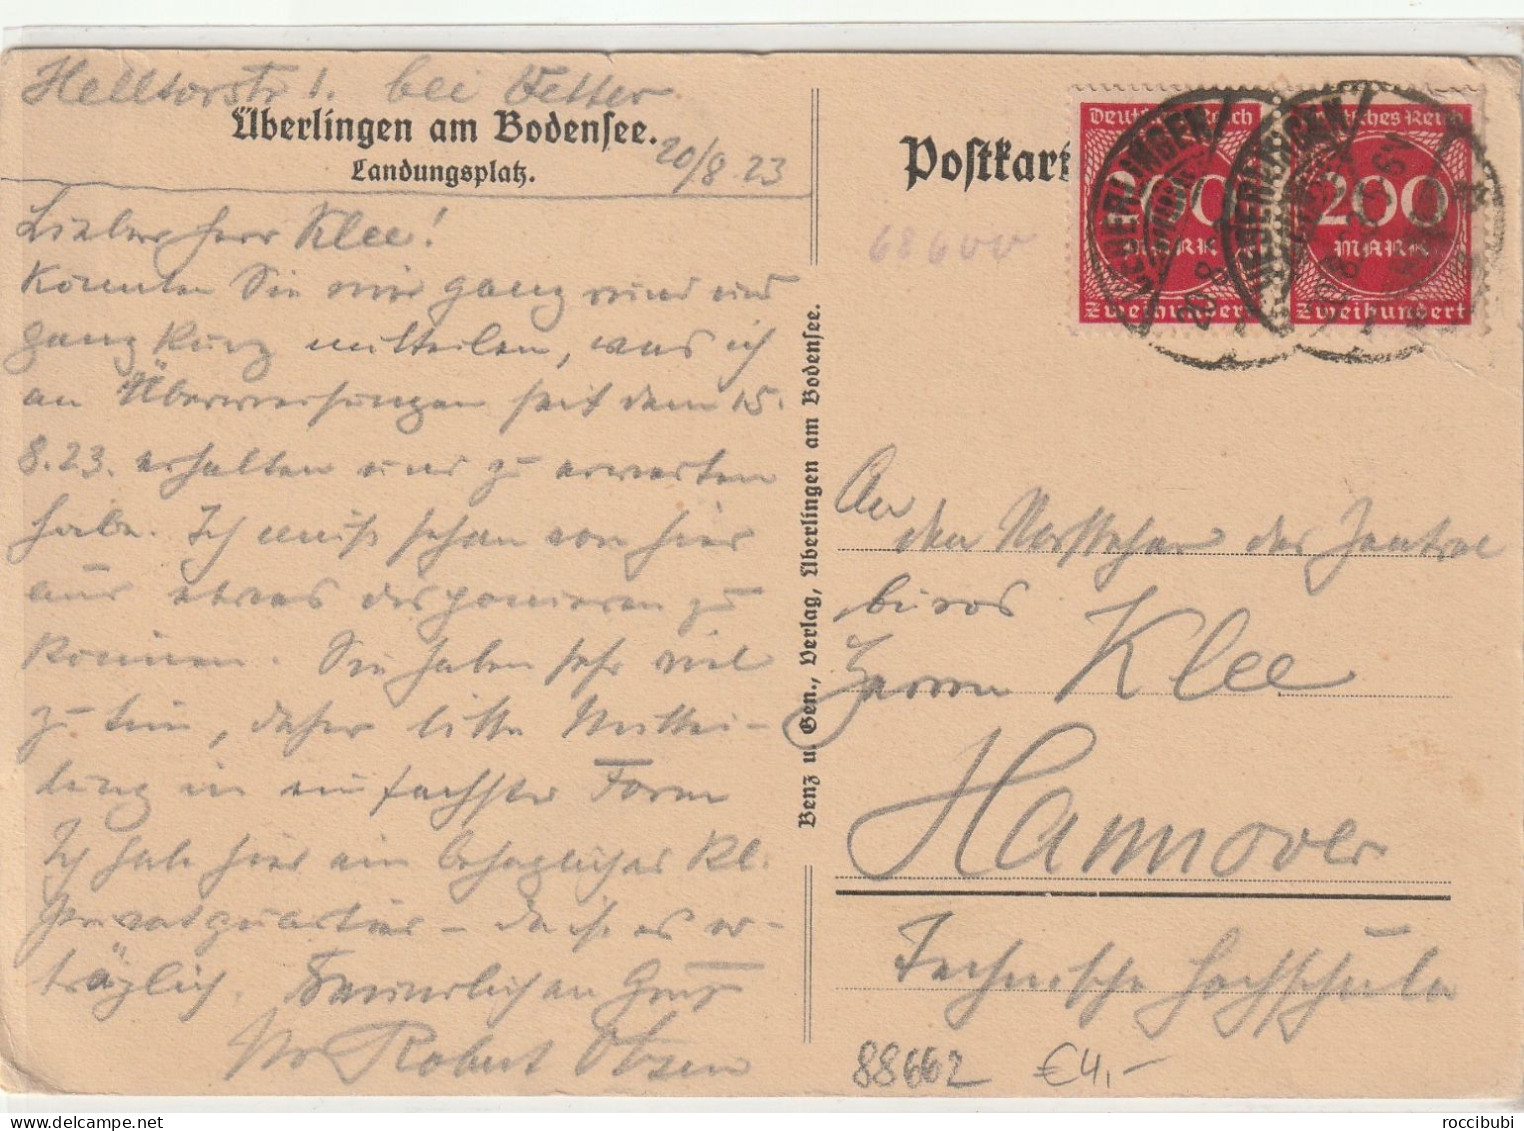 Helltorstr 1. bei Vetter.
Überlingen am Bodensee.
Landungsplatz.
20/8.23
Lieber Herr Klee!
Könnten Sie mir ganz rund und
ganz kurz mitteilen, was ich
an Überweisungen seit dem 15.
8.23. erhalten und zu erwarten
habe. Ich muß schon von hier
aus etwas disponieren zu
können. Sie haben sehr viel
zu tun, daher bitte Mittei-
lung in einfachster Form
Ich habe hier ein behagliches kl.
Privatquartier – da ist es er-
träglich. Freundlichen Gruß
Ihr Robert Otzen
Benz u. Gen., Verlag, Überlingen am Bodensee.
Postkart
68600
Deutsches Reich
200
MARK
Zweihundert
Deutsches Reich
200
MARK
Zweihundert
UEBERLINGEN
20.8
An
den Vorsteher des Zentral
büros
Herrn Klee
Hannover
Technische Hochschule
88662 €4,-
roccibubi